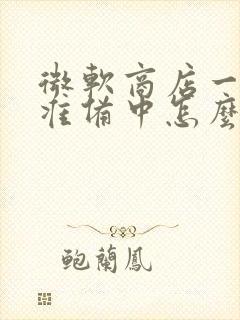 微軟商店一
准備中怎麼
鲍蘭鳳